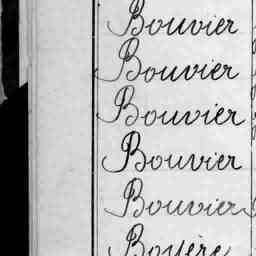 Bouvier
Bouvier
Bouvier
Bouvier
Bouvier
Boyère